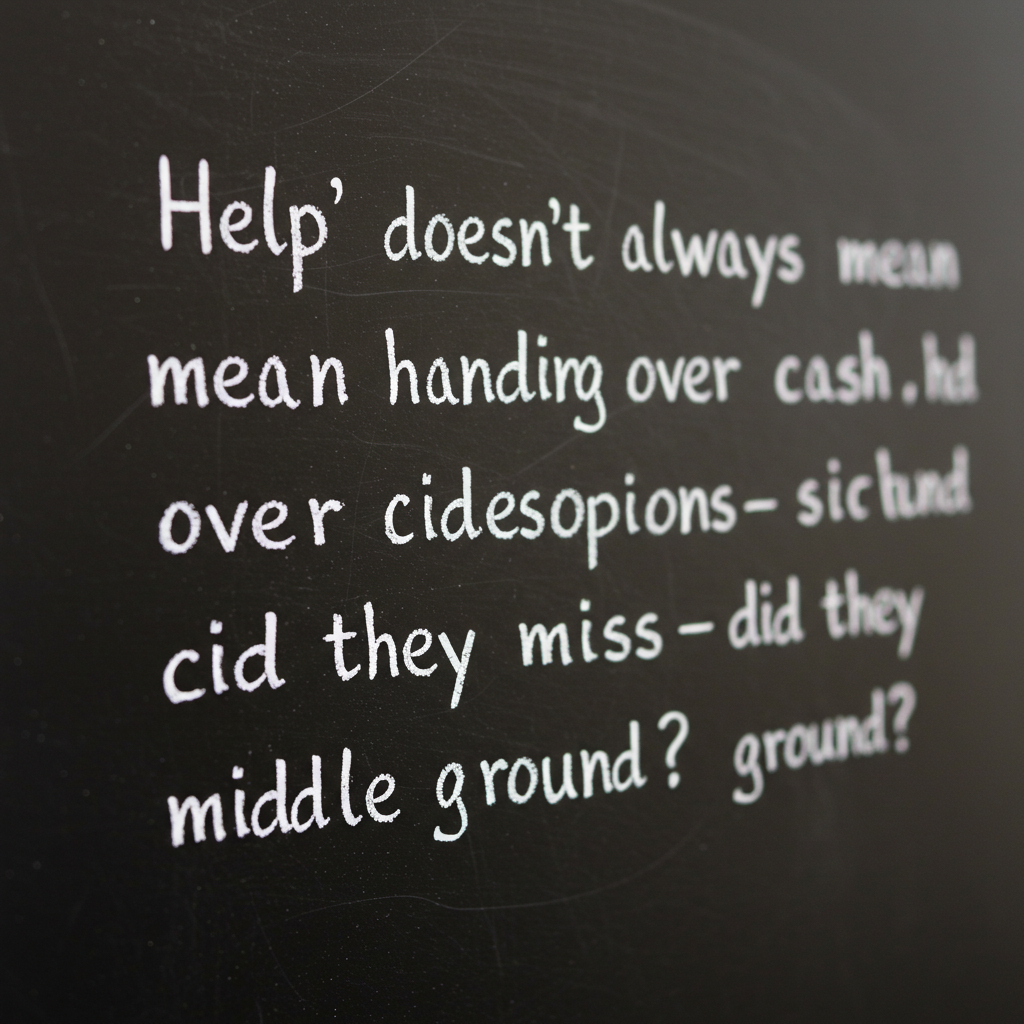 Help' doesn't always mean
mean handing over cash.
over cidesopions–
cid they miss – did they
middle ground? ground?